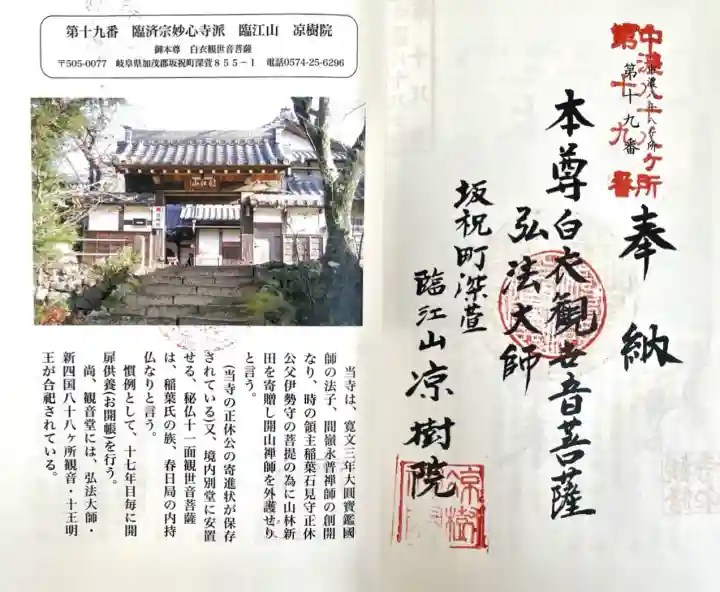 第十九番 臨済宗妙心寺派 臨江山 凉樹院
御本尊 白衣観世音菩薩
〒505-0077 岐阜県加茂郡坂祝町深萱855-1 電話0574-25-6296
臨江山
当寺は、寛文三年大圓寶鑑國
師の法子、間嶺永普禅師の創開
なり、時の領主稲葉石見守正休
公父伊勢守の菩提の為に山林新
田を寄贈し開山禅師を外護せり
と言う。
(当寺の正休公の寄進状が保存
されている)又、境内別堂に安置
せる、秘仏十一面観世音菩薩
は、稲葉氏の族、春日局の内持
仏なりと言う。
慣例として、十七年目毎に開
扉供養(お開帳)を行う。
尚、観音堂には、弘法大師・
新四国八十八ヶ所観音・十王明
王が合祀されている。
中濃八十八ヶ所
第十九番
中濃八十八ヶ所
第十九番
奉納
本尊白衣観世音菩薩
弘法大師
坂祝町深萱
臨江山凉樹院
凉樹